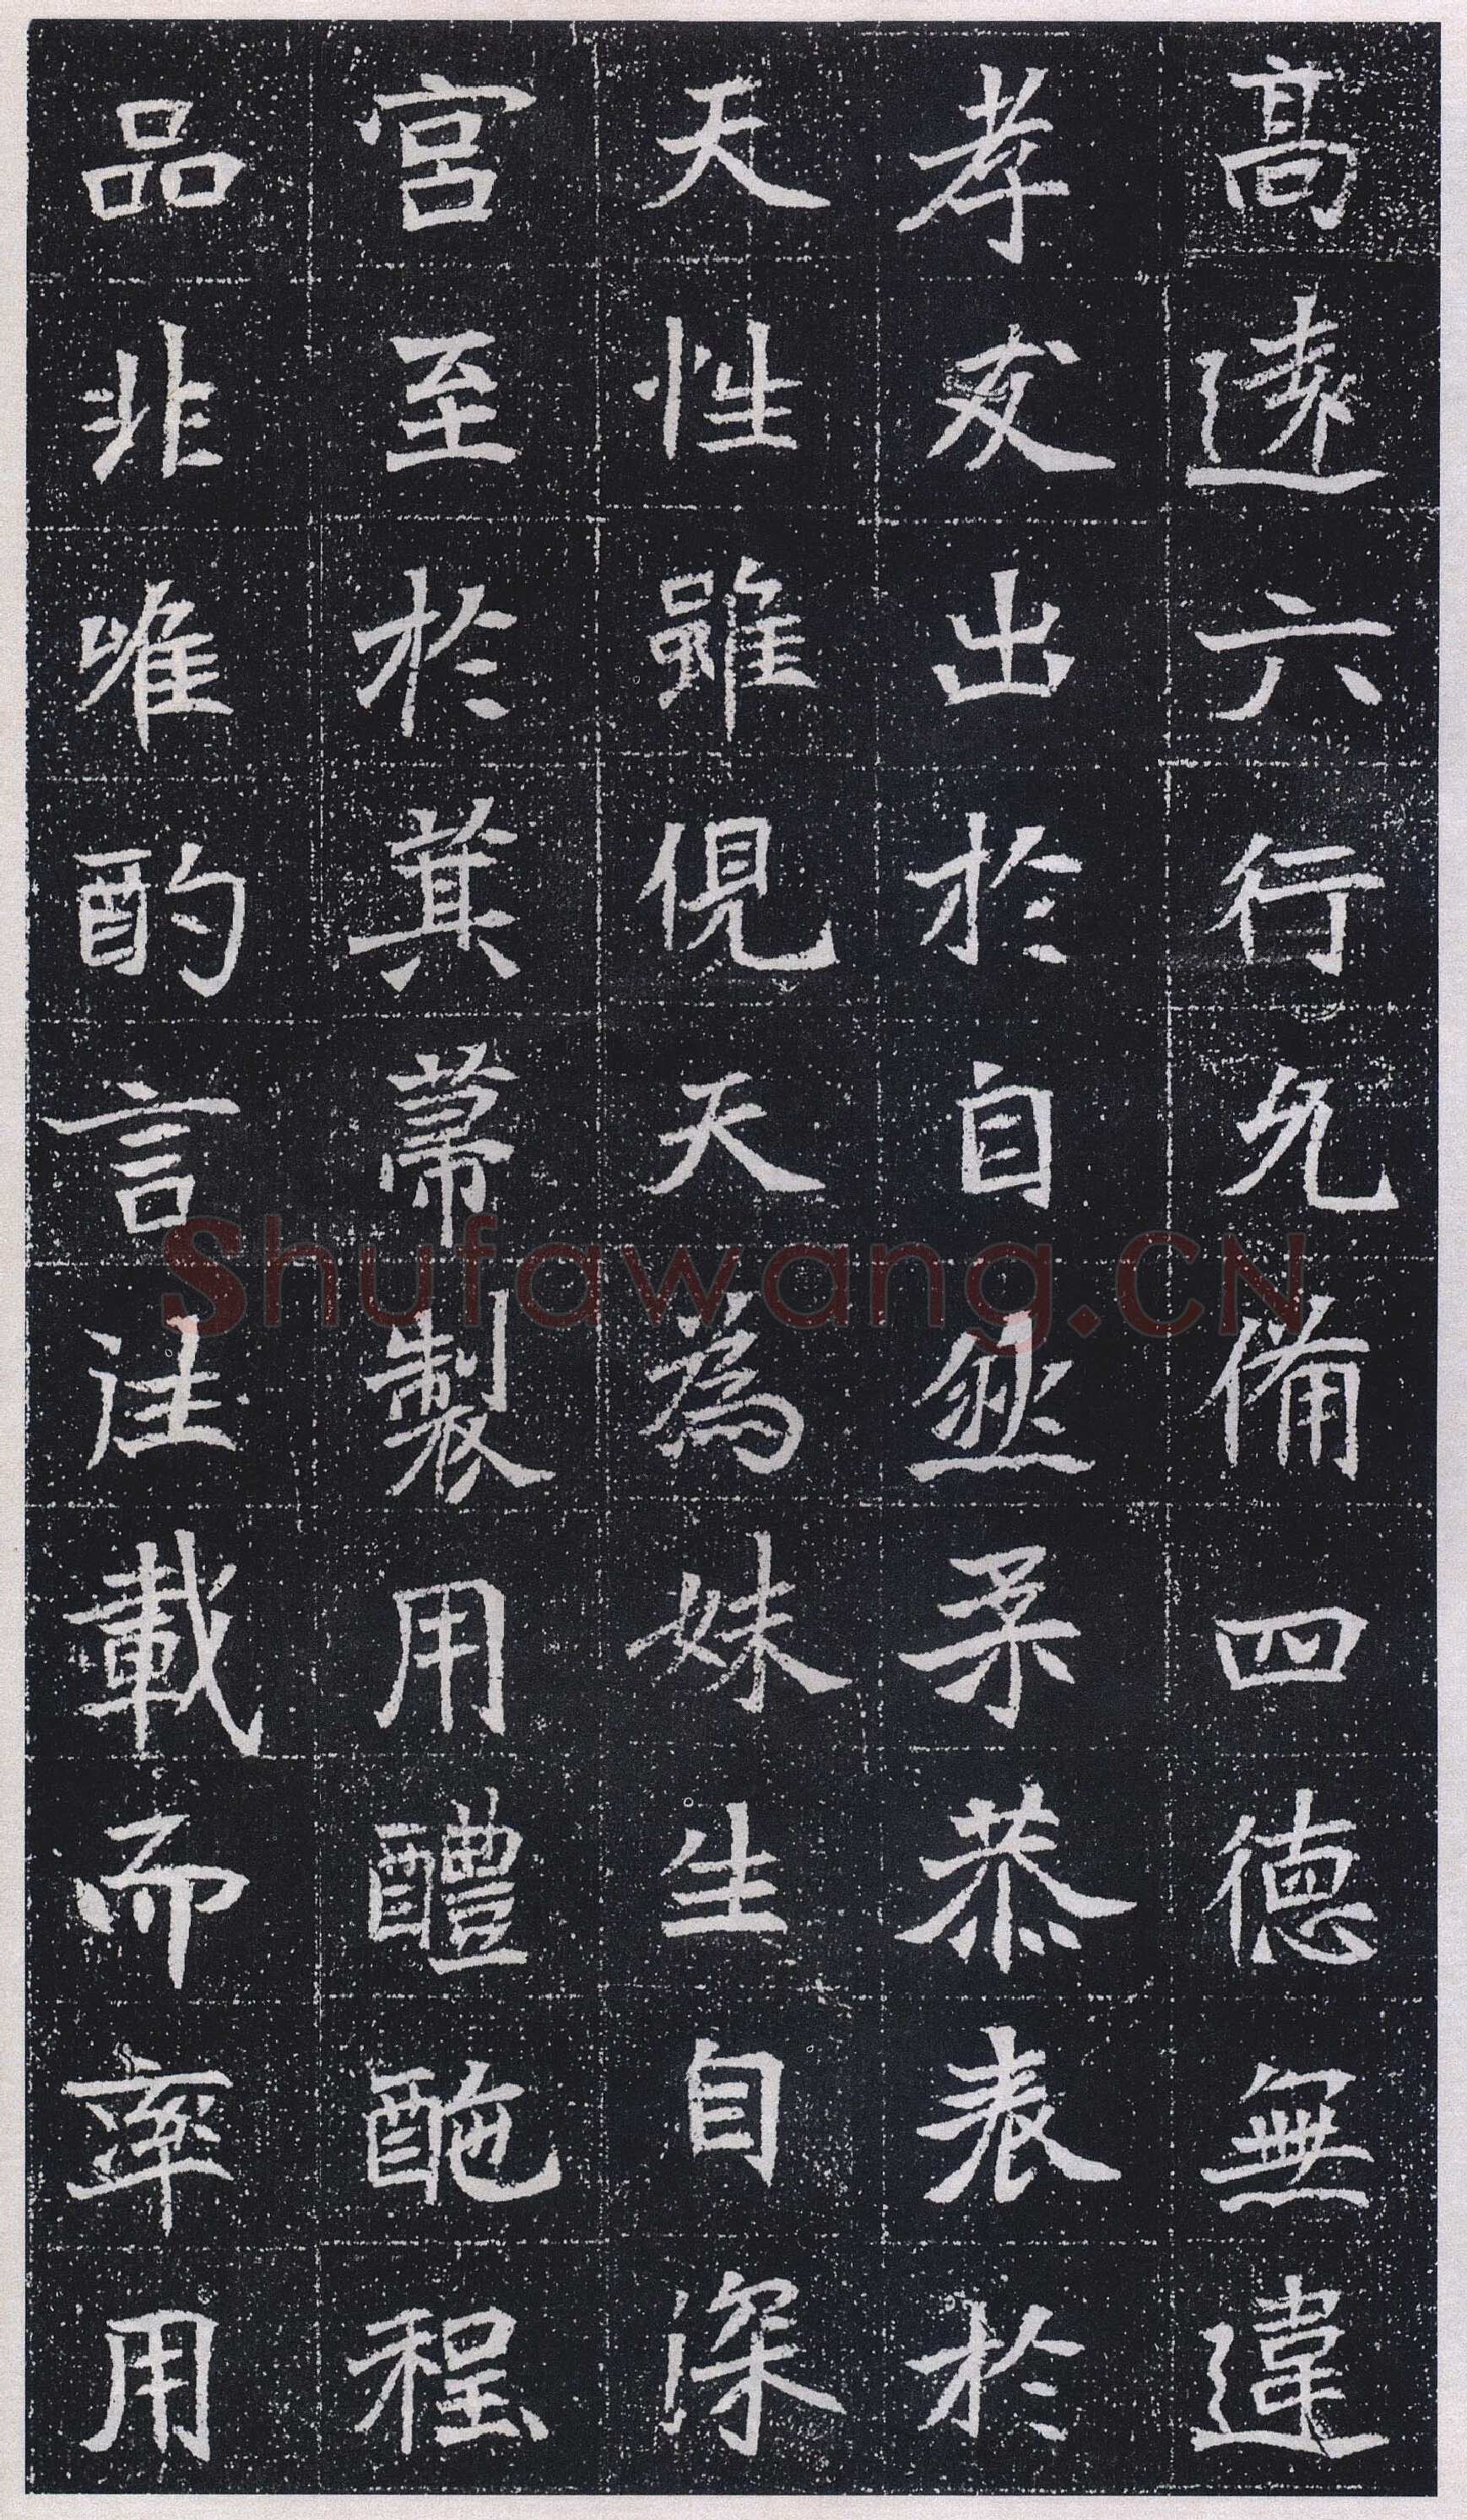 高遠六行允備四德無違
孝友出於自然柔恭表於
天性雖俔天為妹生自深
宮至於箕帚製用醴酏程
品非唯酌言注載而率用
Shufawang.CN